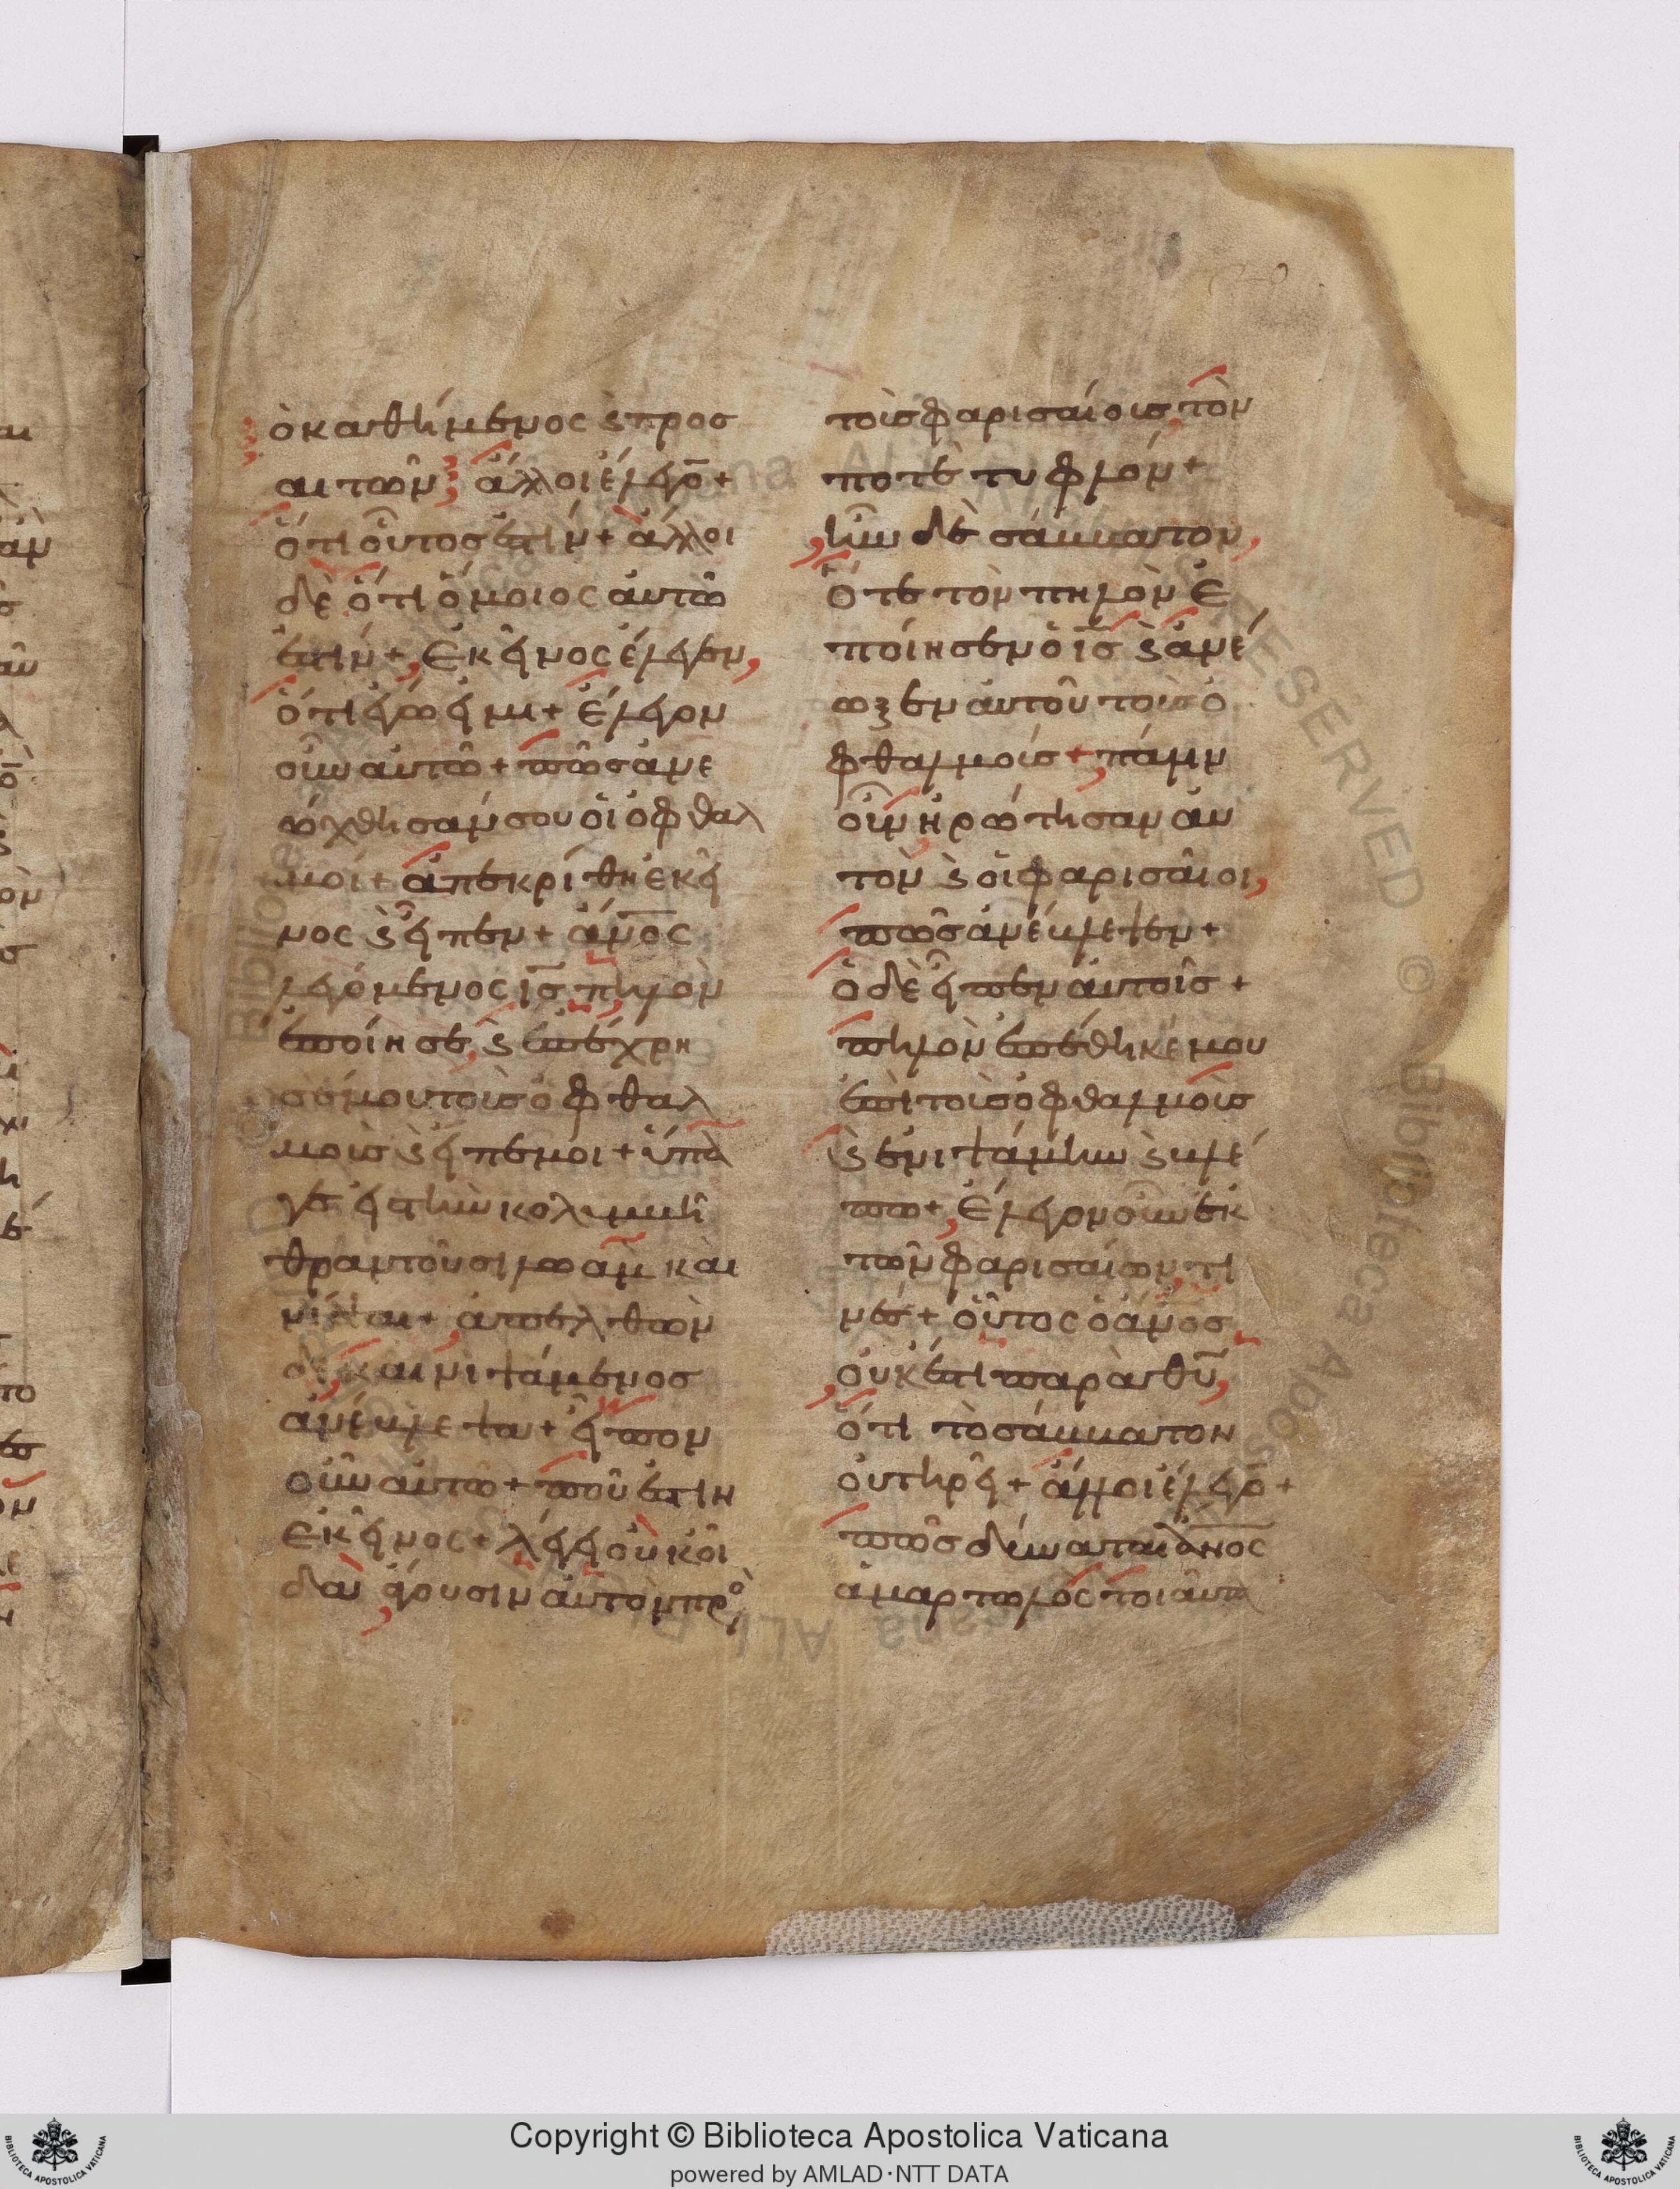 ὁ καθήμενος ϗ προσ
αιτῶν ἄλλοι ἔλεγο̄ +
ὅτι οὗτος ἐστίν + ἄλλοι
δὲ ὅτι ὅμοιος αὐτῶ
ἐστίν + ἐκεῖνος ἔλεγεν,
ὅτι ἐγώ εἰμι + ἔλεγον
οὖν αὐτῶ + πῶς ἀνε
ώχθησάν σου οἱ ὀφθαλ
μοί + ἀπεκρίθη ἐκεῖ
νος ϗ εἶπεν + ἄν̅ο̅ς̅
λεγόμενος ι̅σ̅ πηλὸν
ἐποίησε, ϗ ἐπέχρη
σέ μου τοὺς ὀφθαλ
μοὺς ϗ εἶπέ μοι + ὕπα
γε εἰς τὴν κολυμβή
θραν τοῦ σιλωάμ καὶ
νίψαι + ἀπελθὼν
δὲ καὶ νιψάμενος
ἀνέβλεψα + εἶπον
οὖν αὐτῶ + ποῦ ἐστιν
ἐκεῖνος + λέγει οὐκ οἶ
δα ἄγουσιν αὐτὸν πρὸ
τοὺς φαρισαίους, τὸν
ποτὲ τυφλόν +
ἦν δὲ σάββατον,
ὅτε τὸν πηλὸν ἐ
ποίησεν ὁ ι̅σ̅ ϗ ἀνέ
ωξεν αὐτοῦ τοὺς ὀ
φθαλμούς + πάλιν
οὖν ἠρώτησαν αὐ
τὸν ϗ οἱ φαρισαῖοι,
πῶς ἀνέβλεψεν +
ὁ δὲ εἶπεν αὐτοῖς +
πηλὸν ἐπέθηκέ μου
ἐπὶ τοὺς ὀφθαλμοὺς
ϗ ἐνιψάμην ϗ βλέ
πω + ἔλεγον οὖν ἐκ
τῶν φαρισαίων, τι
νές + οὗτος ὁ ἄν̅ο̅ς̅
οὐκ ἔστι παρὰ θ̅υ̅,
ὅτι τὸ σάββατον
οὐ τηρεῖ + ἄλλοι ἔλεγο̄ +
πῶς δύναται ἄν̅ο̅ς̅
ἁμαρτωλὸς τοιαῦτα